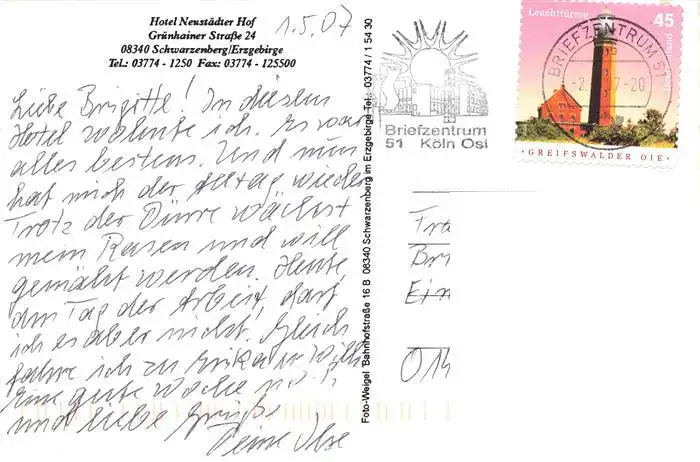 Hotel Neustädter Hof
Grünhainer Straße 24
08340 Schwarzenberg/Erzgebirge
Tel.: 03774 - 1250 Fax: 03774 - 125500
1.5.07
Liebe Brigitte! In diesem
Hotel wohnte ich. Es war
alles bestens. Und nun
hat mich der Alltag wieder.
Trotz der Dürre wächst
mein Rasen und will
gemäht werden. Heute,
am Tag der Arbeit, darf
ich es aber nicht. Gleich
fahre ich zu
Eine gute Woche
und liebe Grüße
Deine Ilse
Foto-Weigel Bahnhofstraße 16 B 08340 Schwarzenberg im Erzgebirge Tel. 03774 / 1 54 30
Briefzentrum
51 Köln Ost
Leuchttürme
45
BRIEFZENTRUM 51
-20
GREIFSWALDER OIE
Fra
Bri
Ein
014